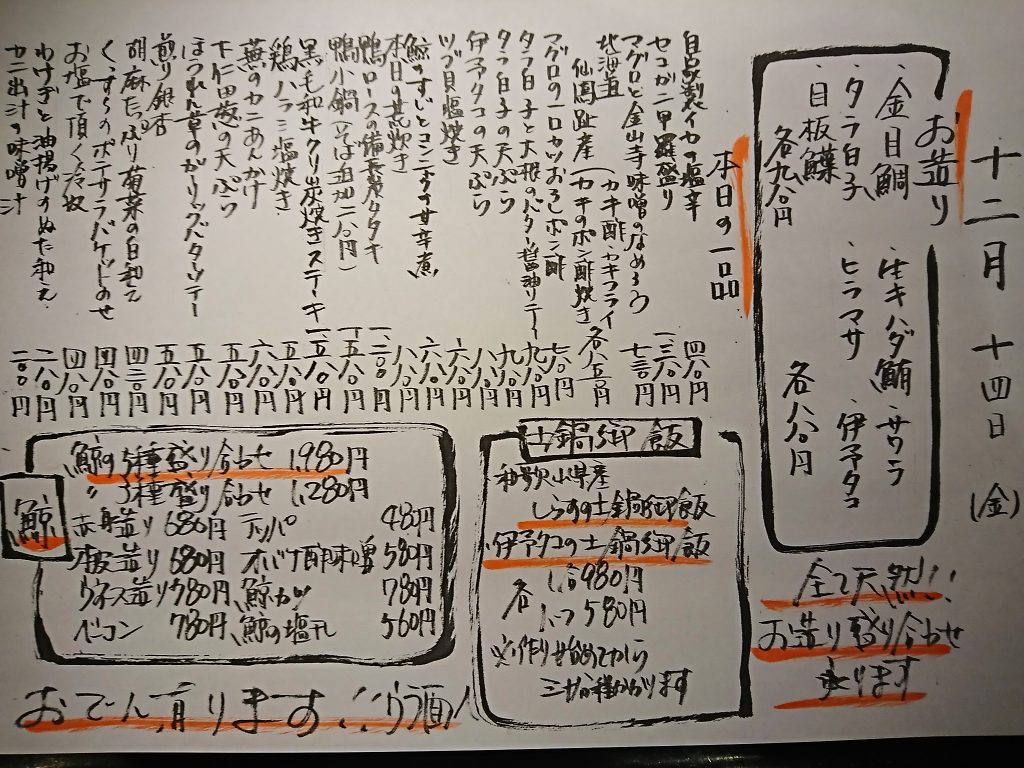 十二月 十四日 (金)
お造り
・金目鯛 ・生キハダ鮪 ・サワラ
・タラ白子 ・ヒラマサ ・伊予タコ
・目板鰈
各九八〇円
各八八〇円
全て天然!!
お造り盛り合わせ
承ります
本日の一品
自家製イカの塩辛 四八〇円
セコガニ甲羅盛り 一、三八〇円
マグロと金山寺味噌のなめろう 七三〇円
北海道 仙鳳趾産 (カキ酢・カキフライ カキのポン酢焼き 各八五〇円
マグロの一口カツおろしポン酢 七八〇円
タラ白子と大根のバター醤油ソテー 九八〇円
タラ白子の天ぷら 九八〇円
伊予タコの天ぷら 八八〇円
ツブ貝塩焼き 六八〇円
鯨すじとコンニャクの甘辛煮 六八〇円
本日の煮炊き 八八〇円
鴨ロースの備長炭タタキ 一、二〇〇円
鴨小鍋(そば追加二八〇円)
黒毛和牛クリ炭焼きステーキ 一、五八〇円
鶏ハラミ塩焼き 五八〇円
蕪のカニあんかけ 六八〇円
下仁田葱の天ぷら 五八〇円
ほうれん草のガーリックバターソテー 五八〇円
煎り銀杏 五八〇円
胡麻たっぷり菊菜の白和え 四三〇円
くずしのポテサラバゲットのせ 四八〇円
お塩で頂く冷奴 四八〇円
わけぎと油揚げのぬた和え 二八〇円
カニ出汁の味噌汁 二〇〇円
土鍋御飯
和歌山県産
しらすの土鍋御飯
伊予タコの土鍋御飯
各 1.5合980円
580円
※作り始めてから
三十分程かかります
鯨
鯨の5種盛り合わせ 1,980円
〃 3種盛り合わせ 1,280円
赤身造り 680円 コロッパ 480円
本皮造り 680円 オバケ酢味噌 580円
ウネス造り 780円 鯨カツ 780円
ベーコン 780円 鯨の塩干 560円
おでん有ります!!